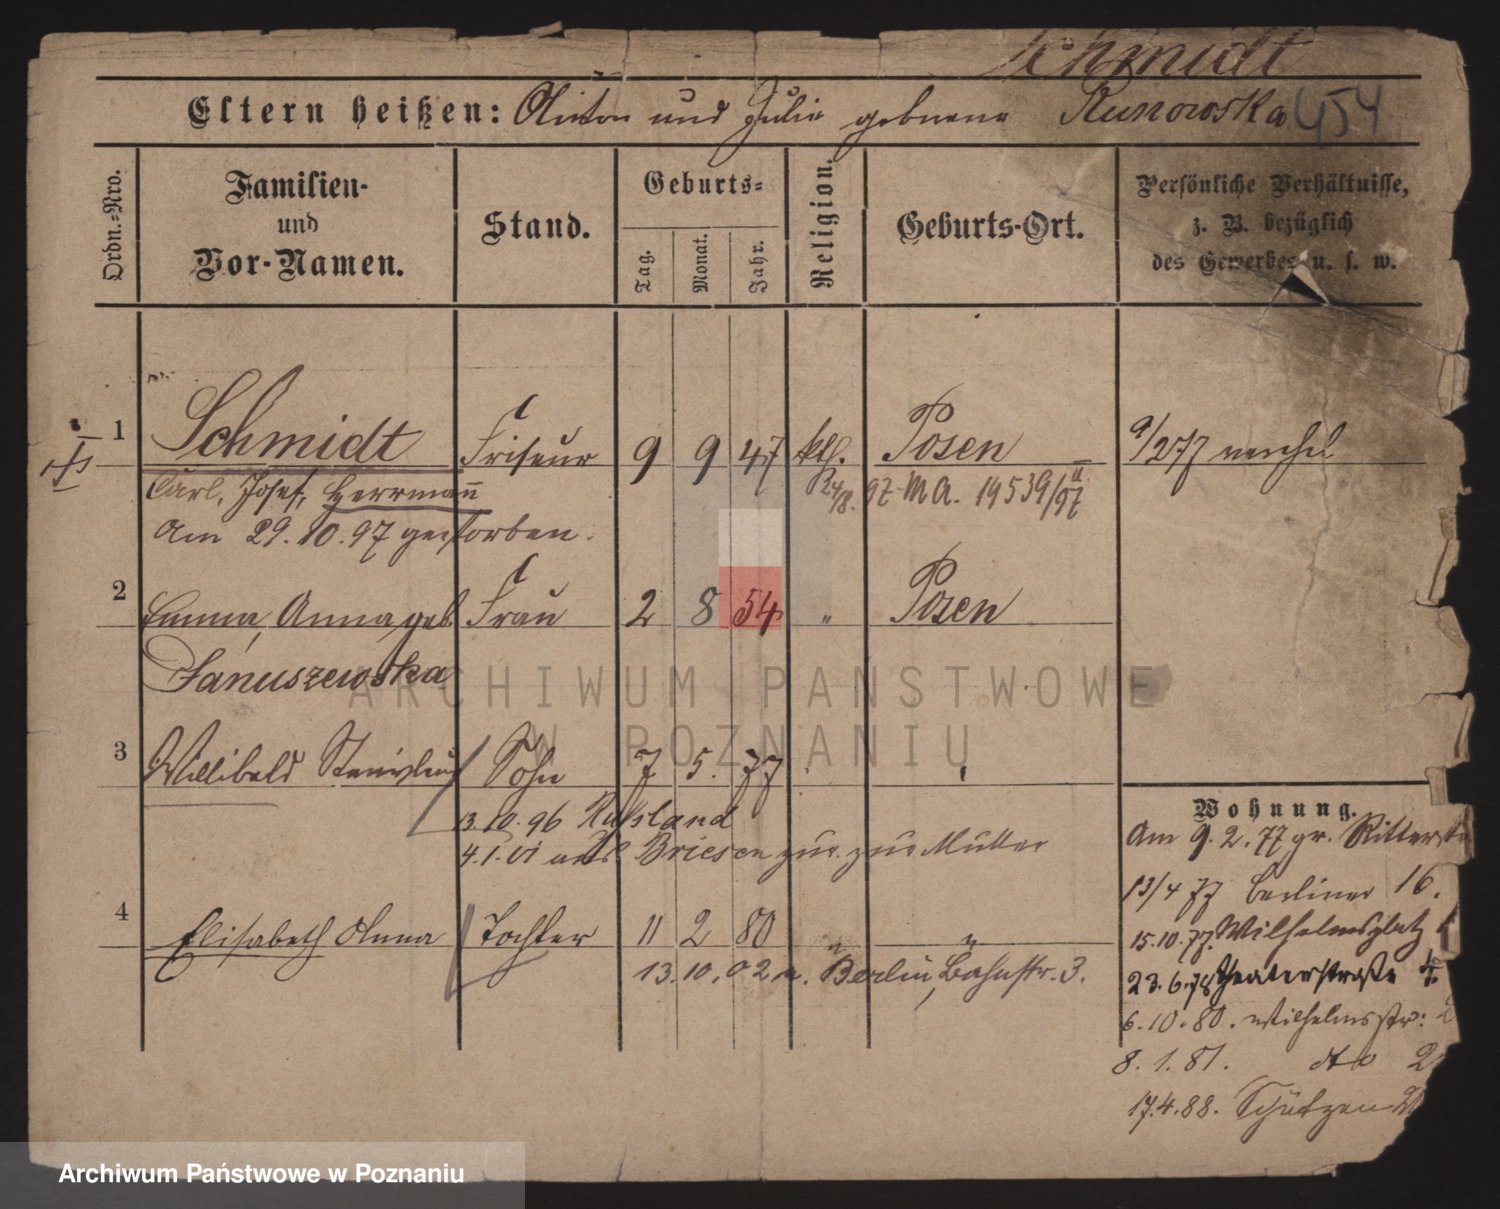 Schmidt
Eltern heißen: Anton und Julie geborene Runowska 454
Ordn.-Nro.
Familien-
und
Vor-Namen.
Stand.
Geburts-
Tag.
Monat.
Jahr.
Religion.
Geburts-Ort.
Persönliche Verhältnisse,
z. B. bezüglich
des Gewerbes u. s. w.
1 Schmidt Friseur 9 9 47 kth. Posen 9/277
Carl, Josef, Herrmann
24/8. 97. M A. 19539/97
am 29.10.97 gestorben.
2 Emma, Anna geb. Frau 2 8 54 " Posen
Januszewska
3 Willibald Stanislaus Sohn 7 5. 77
13.10.96 Russland
4.1.01 aus Briesen zur. zur Mutter
4 Elisabeth Anna Tochter 11 2 80 " "
13.10.02 n. Berlin, Bahnstr. 3.
Wohnung.
Am 9.2.77 gr. Ritterstr
13/4 77 Berliner 16.
15.10.77. Wilhelmsplatz
23.6.78 Theaterstraße 4.
6.10.80. Wilhelmsstr: 2
8.1.81. dto 2
17.4.88. Schützen 2
ARCHIWUM PANSTWOWE
W POZNANIU
Archiwum Państwowe w Poznaniu